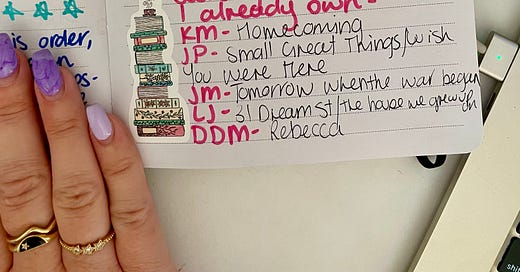 is order,
I already own-
KM- Homecoming
JP- Small Great Things/Wish
You Were Here
JM- Tomorrow when the war began
LJ- 31 Dream St/the house we grew up in
DDM- Rebecca